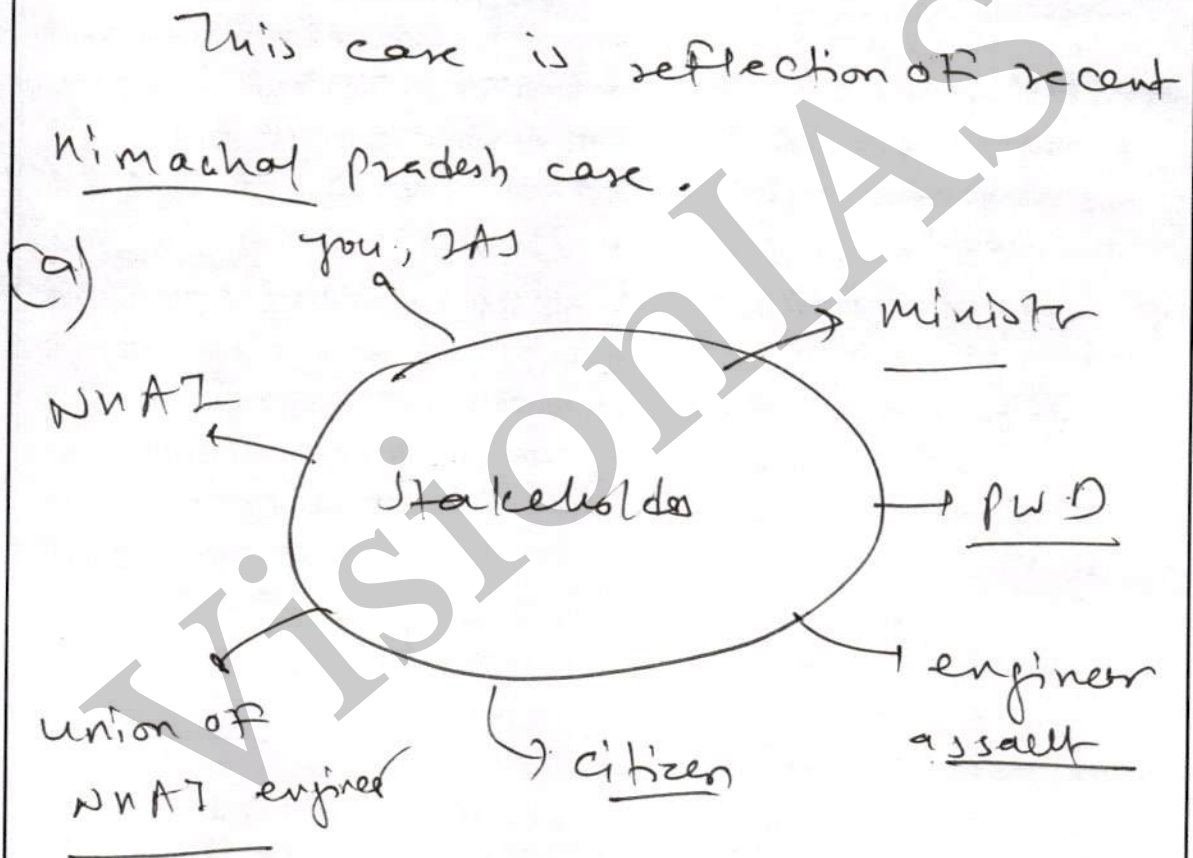 This case is reflection of recent
Himachal Pradesh case.
a)
you, IAS
Minister
NHAI
Stakeholder
PWD
engineer
assault
union of
NHAI engineer
citizen
VisionIAS